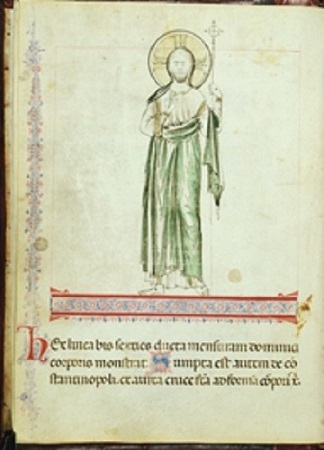 HEc linea bis sexties ducta mensuram dominici
corporis monstrat. Sumpta est autem de cō
stantinopoli. ex aurea cruce fc̄a ad formā